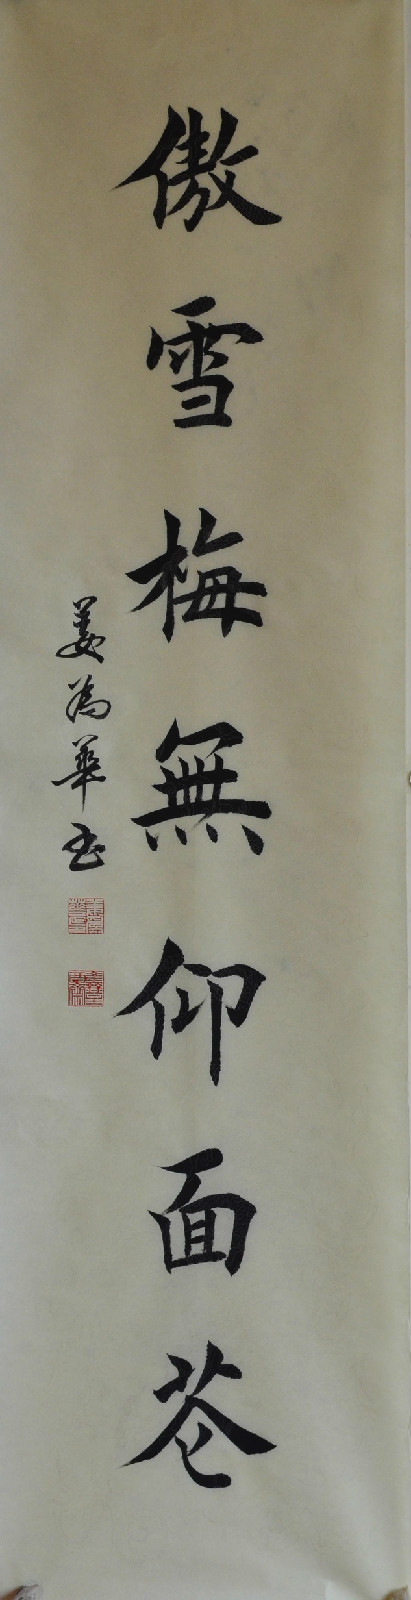 傲雪梅無仰面花
姜為華书